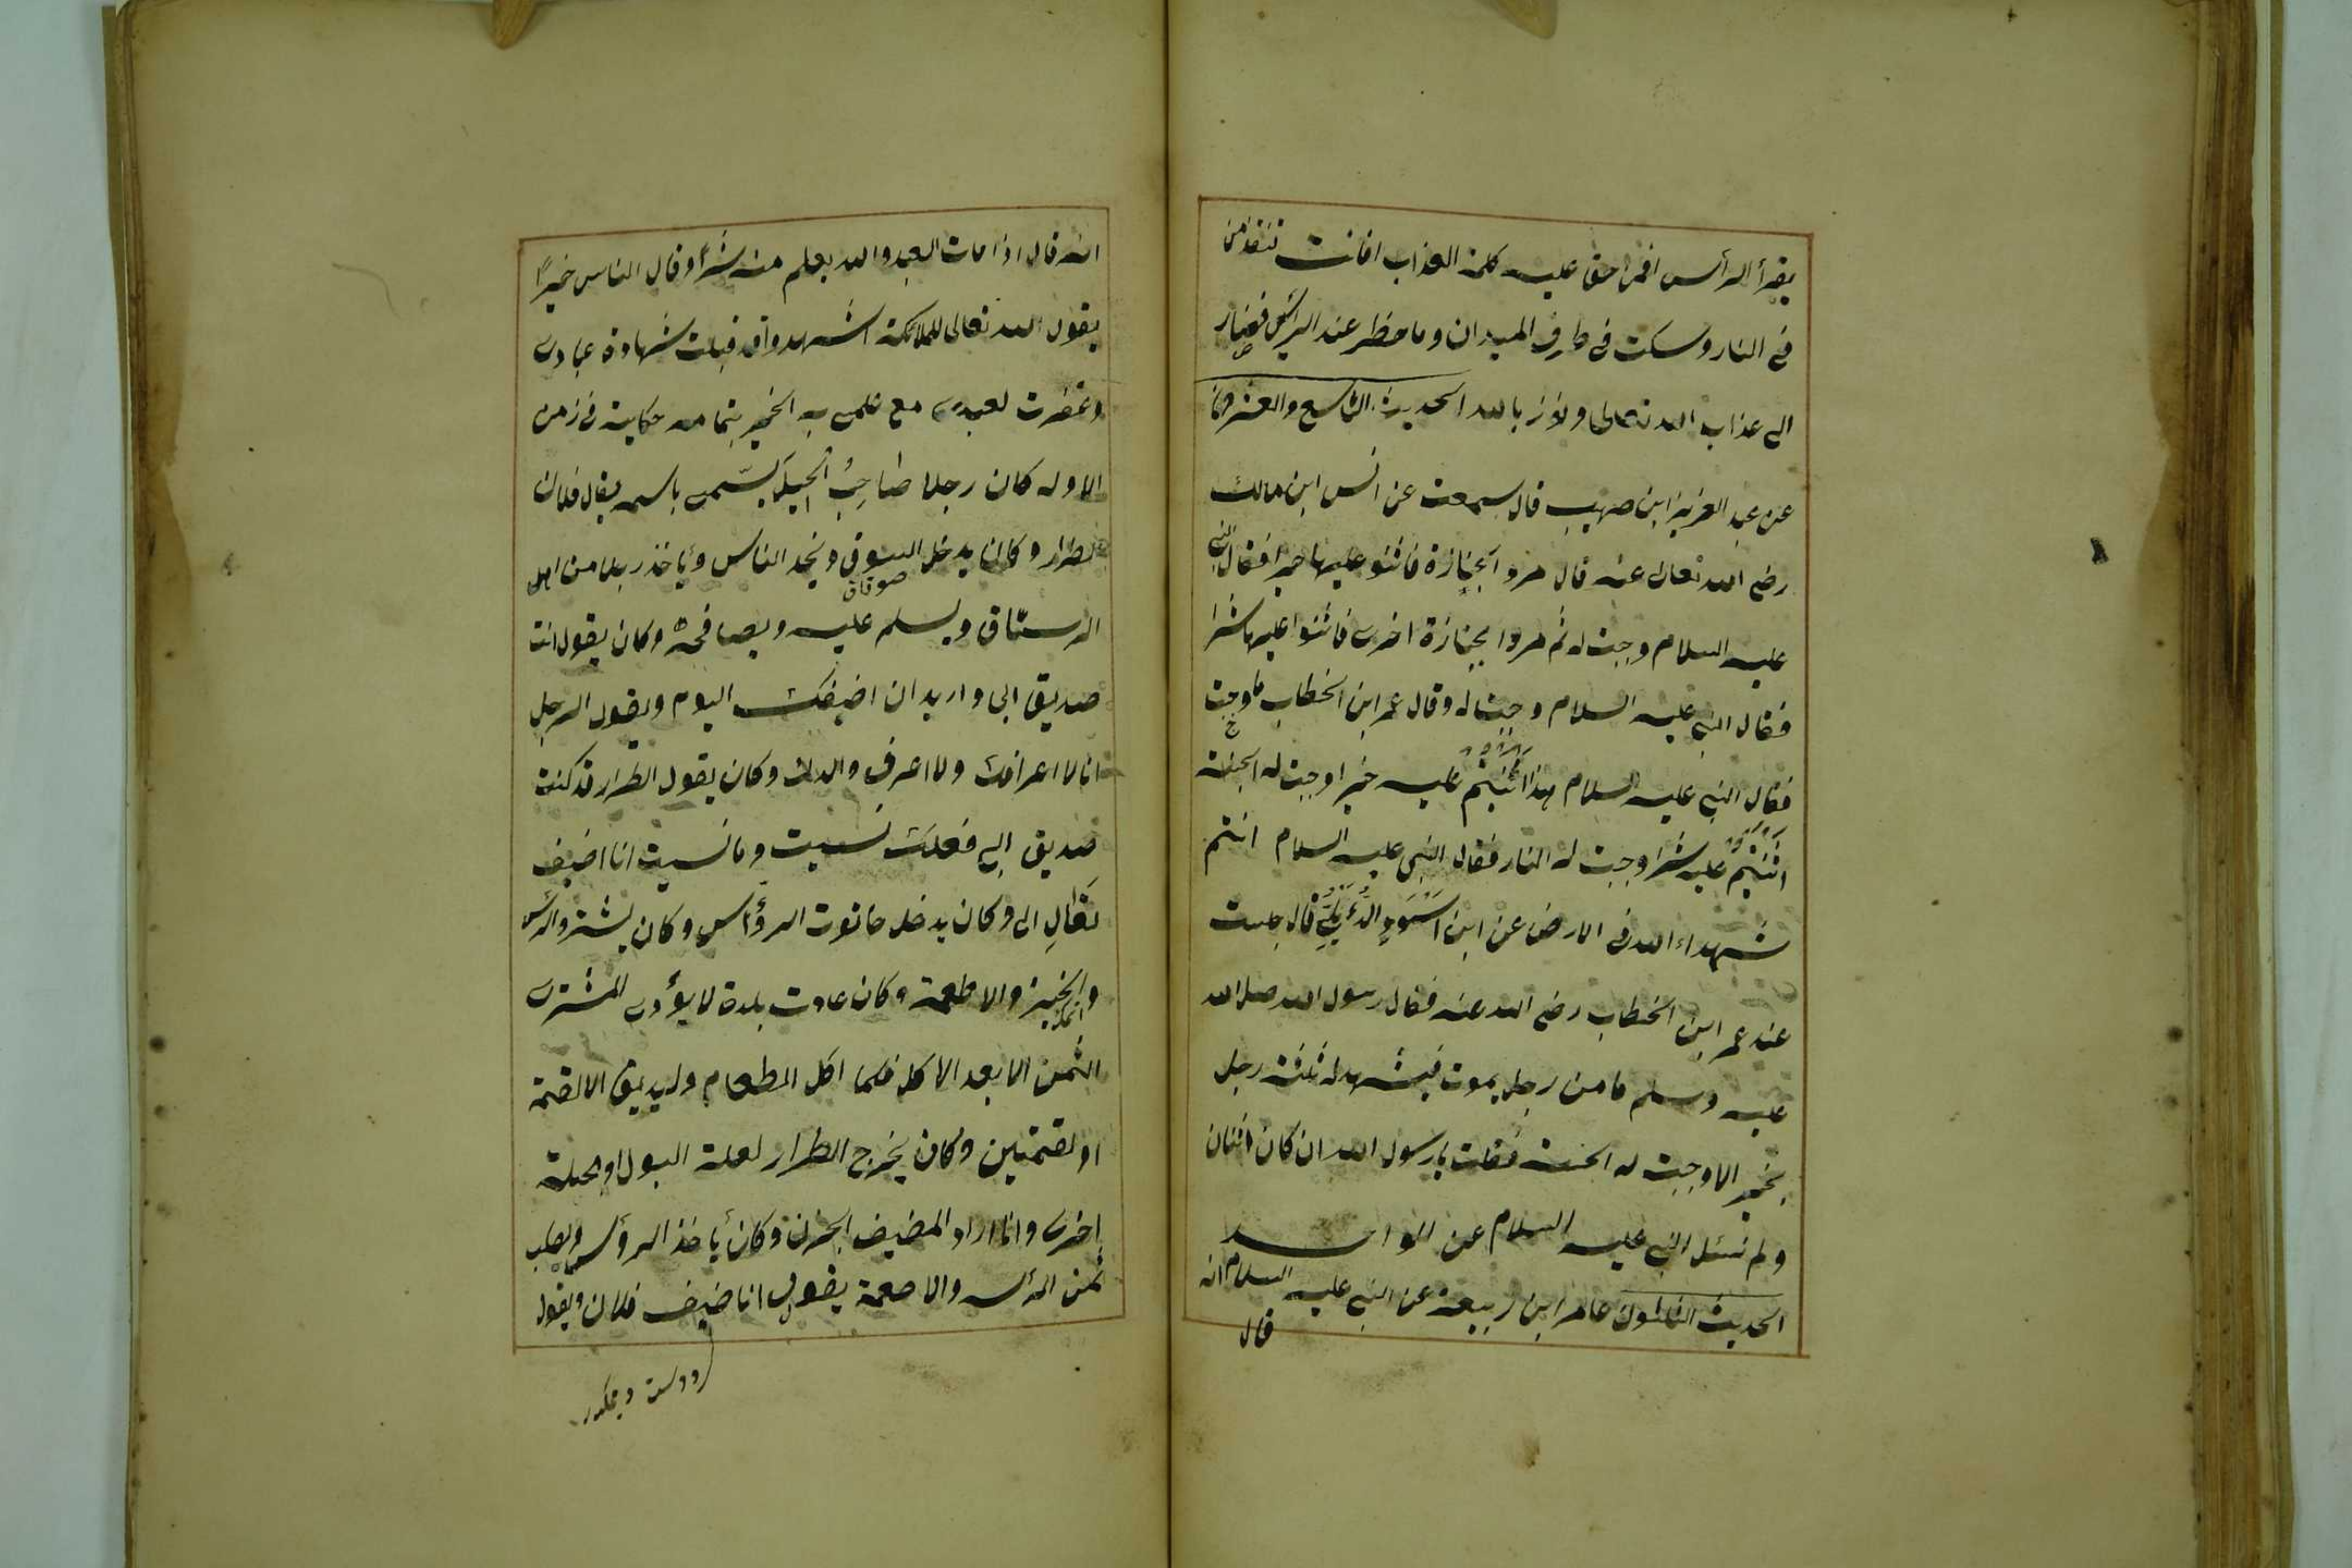 يقرأ الرأس افمن حق عليه كلمة العذاب افانت تنقذ من
في النار وسكت في طرف الميدان وما حظر عند الرأس فصار
الى عذاب الله تعالى ونعوذ بالله الحديث التاسع والعشرون
عن عبد العزيز ابن صهيب قال سمعت عن انس ابن مالك
رضى الله تعالى عنه قال مروا بجنازة فاثنو عليها خيرا فقال النبي
عليه السلام وجبت له ثم مروا بجنازة اخرى فاثنوا عليها شرا
فقال النبي عليه السلام وجبت له وقال عمر ابن الخطاب ما وجبت
فقال النبي عليه السلام هذا اثنيتم عليه خيرا وجبت له الجنة
اثنيتم عليه شرا وجبت له النار فقال النبي عليه السلام انتم
شهداء الله في الارض عن ابن اسود الدئلي قال جلست
عند عمر ابن الخطاب رضى الله عنه فقال رسول الله صلى الله
عليه وسلم ما من رجل يموت فيشهد له ثلثة رجل
بخير الا وجبت له الجنة فقلت يا رسول الله ان كان اثنان
ولم نسئل النبي عليه السلام عن الواحد
الحديث الثلثون عامر ابن ربيعة عن النبي عليه السلام انه
قال
انه قال اذا مات العبد والله يعلم منه شرا وقال الناس خيرًا
يقول الله تعالى للملائكة اشهدوا قد قبلت شهادة عبادى
وغفرت لعبدى مع علمى به الخير بتمامه حكاية في زمن
الاوله كان رجلا صاحِبُ الحيل يسّمى باسمه يقال فلان
طرار وكان يدخل السوق ويخد الناس ويأخذ رجلا من اهل
الرستاق ويسلم عليه ويصافحه وكان يقول انت
صديق ابى واريد ان اضيفك اليوم ويقول الرجل
انا لا اعرافك ولا اعرف والدك وكان يقول الطرار قد كنت
صديق ابى فعلك نسيت وما نسيت انا اضيف
تعَالِ الى وكان يدخل حانوت الرؤاس وكان يشتر والرأس
والخبز والاطعمة وكان عادت بلدة لا يؤدى المشترى
الثمن الا بعد الاكل فلما اكل الطعام ولم يبق الا لقمة
او لقمتين وكان يخرج الطرار لعلة البول او لحيلة
اخرى واذا اراد المضيف الحزن وكان يأخذ الرؤس ويطلب
ثمن الرأس والاطعمة يقول انا ضيف فلان ويقول